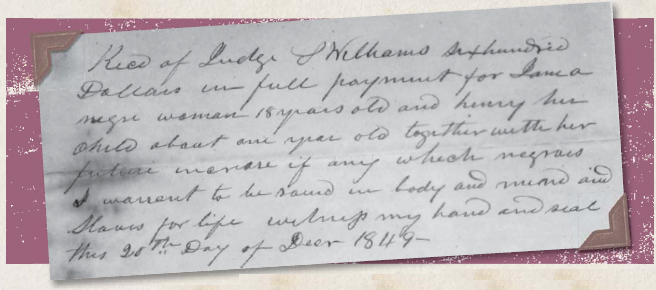 Recd of Judge S Williams six hundred
Dollars in full payment for Jane a
negro woman 18 years old and henry her
child about one year old together with her
future increase if any which negroes
I warrent to be sound in body and mind and
Slaves for life witness my hand and seal
this 20th Day of Decr 1849-